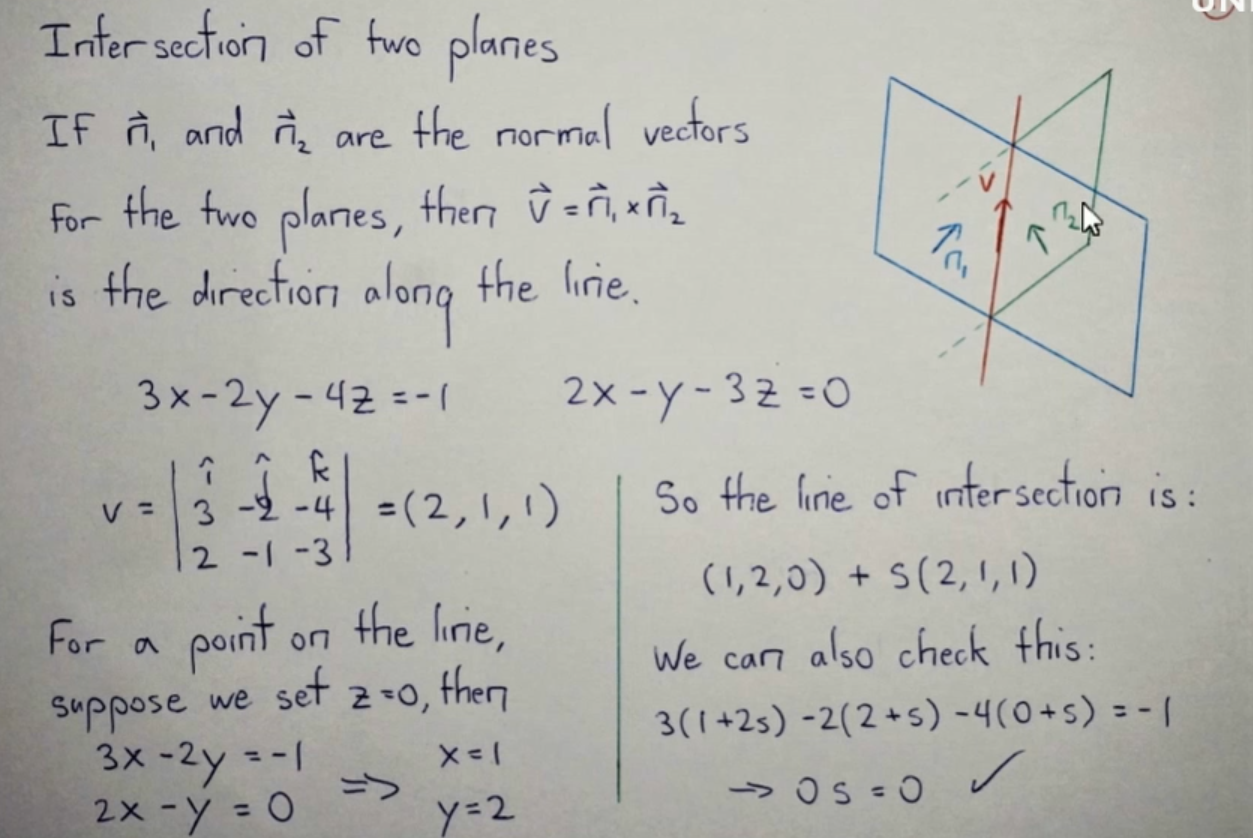 Intersection of two planes
If n⃗₁ and n⃗₂ are the normal vectors
for the two planes, then v⃗ = n⃗₁ × n⃗₂
is the direction along the line.
v
n₁
n₂
3x - 2y - 4z = -1
2x - y - 3z = 0
v = | î ĵ k̂ |
| 3 -2 -4 | = (2, 1, 1)
| 2 -1 -3 |
For a point on the line,
suppose we set z=0, then
3x - 2y = -1 x = 1
2x - y = 0 ⇒ y = 2
So the line of intersection is:
(1, 2, 0) + s(2, 1, 1)
We can also check this:
3(1+2s) - 2(2+s) - 4(0+s) = -1
→ 0s = 0 ✓